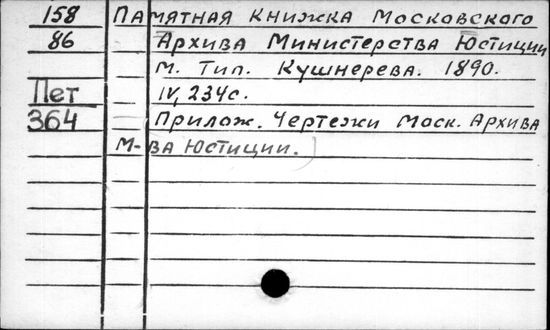 158 Памятная Книжка Московского
86 Архива Министерства Юстиции
М. Тип. Кушнерева. 1890.
Пет IV, 234с.
364 Прилож. Чертежи Моск. Архива
М-ва Юстиции.)